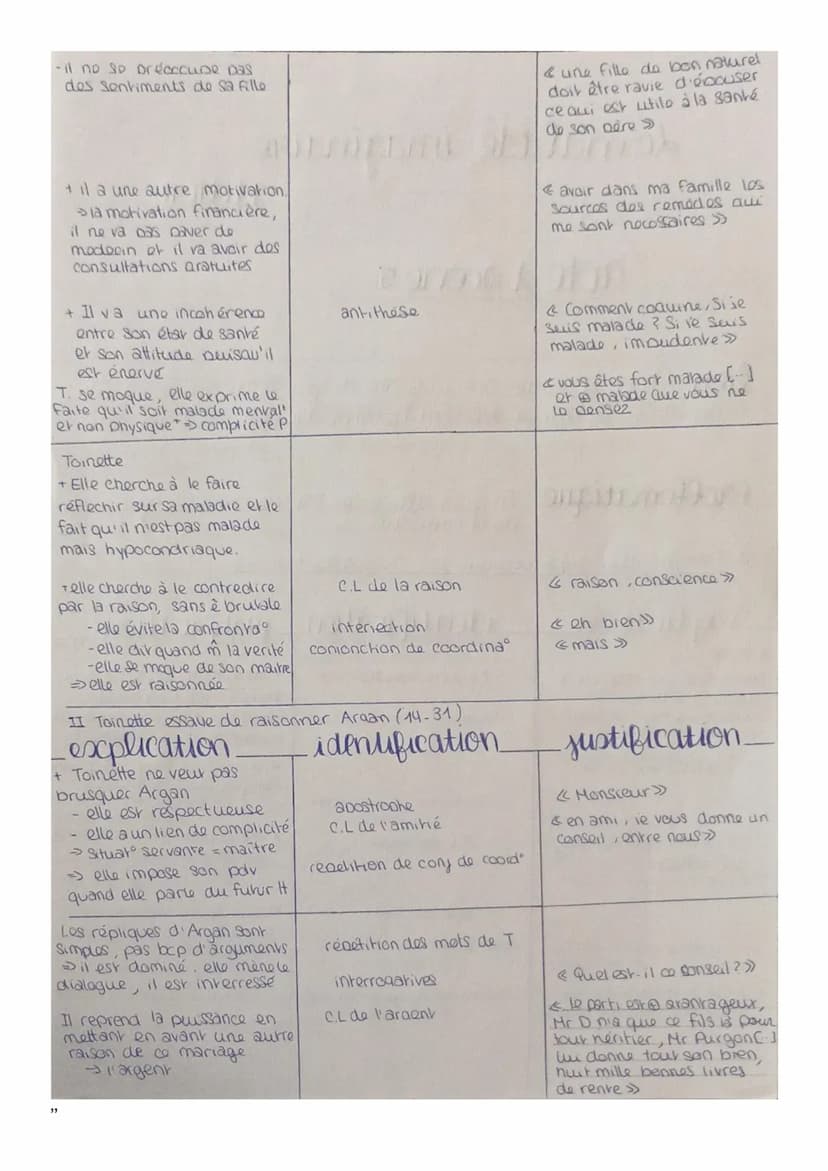 - il ne se préoccupe pas
des sentiments de sa fille
« une fille de bon naturel
doit être ravie d'épouser
ce qui est utile à la santé
de son père »
+ il a une autre motivation
⇒ la motivation financière,
il ne va pas payer de
medecin et il va avoir des
consultations gratuites
« avoir dans ma famille les
sources des remèdes qui
me sont necessaires »
+ Il y a une incohérence
entre son état de santé
et son attitude puisqu'il
est énervé
antithèse
« Comment coquine, si je
suis malade ? Si je suis
malade, impudente »
T. se moque, elle exprime le
faite qu'il soit malade mental
et non physique ⇒ complicité P
« vous êtes fort malade [...]
et ⊕ malade que vous ne
le pensez
Toinette
+ Elle cherche à le faire
réflechir sur sa maladie et le
fait qu'il n'est pas malade
mais hypocondriaque.
+ elle cherche à le contredire
par la raison, sans ê brutale
C.L de la raison
« raison, conscience »
- elle évite la confronta°
interjection
« eh bien »
- elle dit quand m̂ la verité
conjonction de coordina°
« mais »
- elle se moque de son maitre
⇒ elle est raisonnée
II Toinette essaye de raisonner Argan (14-31)
explication identification justification
+ Toinette ne veut pas
brusquer Argan
- elle est respectueuse
apostrophe
« Monsieur »
- elle a un lien de complicité
C.L de l'amitié
« en ami, je vous donne un
conseil, entre nous »
→ situat° servante = maître
⇒ elle impose son pdv
quand elle parle du futur H
repetition de conj de coord°
Les répliques d'Argan sont
simples, pas bcp d'arguments
⇒ il est dominé. elle mène le
dialogue, il est interressé
répétition des mots de T
interrogatives
« Quel est-il ce conseil ? »
Il reprend la puissance en
mettant en avant une autre
raison de ce mariage
→ l'argent
C.L de l'argent
« le parti est ⊕ avantageux,
Mr D n'a que ce fils là pour
tout héritier, Mr Purgon [...]
lui donne tout son bien,
huit mille bonnes livres
de rente »
”